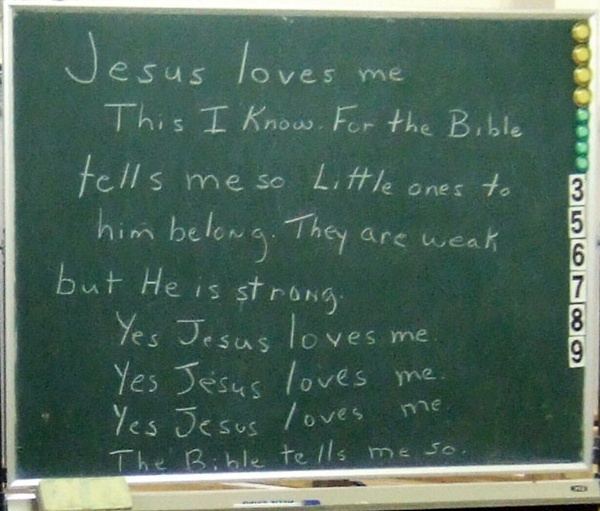 Jesus loves me
This I Know. For the Bible
tells me so Little ones to
him belong. They are weak
but He is strong.
Yes Jesus loves me.
Yes Jesus loves me.
Yes Jesus loves me
The Bible tells me so.
3
5
6
7
8
9